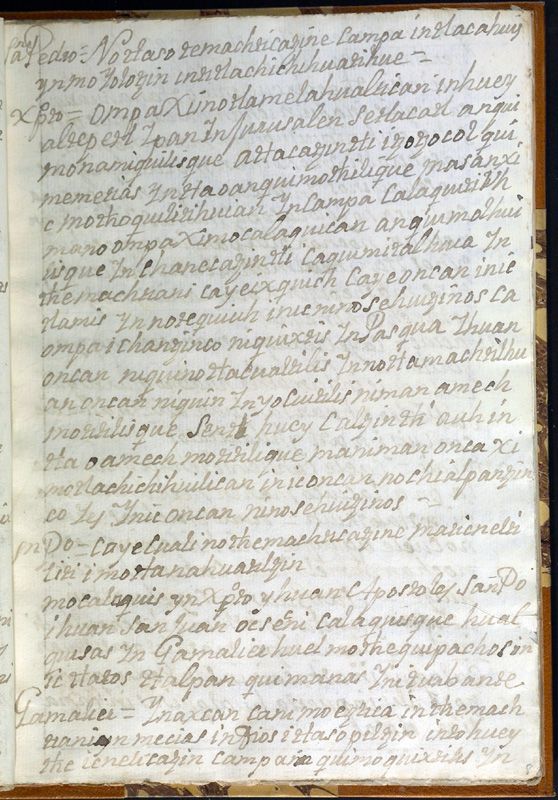 Sn Pedro = Notlaso temachticatzine campa intlacahuij
ynmo Yolotzin intitlachichihuatihue =
Xpto = Ompa Ximotlamelahualtican inhuey
altepetl Ypan In Jurusalen Setlacatl anqui
monamiquilisque atlacatzintli itzotzocol qui
memetias Yntla oanquimothilique Ynasanxi
c mothoquilitihuian Yncampa Calaquitiuh
mano ompa Ximocalaquican anquimolhui
lisque Inchanecatzintli caquimitalhuia In
themachtiani cayeixquich caye oncan inic
tlamis Ynnotequiuh inic ninosehuitzinos ca
ompa ichantzinco niquixtis InPasqua Yhuan
oncan niquinotlacualtilis Innotlamachtilhu
an oncan niquin Ynyolcuitilis niman amech
mottitilisque Sentetl huey Caltzintli auh in
tla oamechmottitilique maniman onca xi
motlachichihuilican inic oncan nochialpantzin
co Yez Ynic oncan ninosehuitzinos =
Sn Po = Caye cuali nothemachticatzine maticnelti
liti imotlanahuatiltzin
mocalaquis yn Xpto yhuan Apostoles San Po
ihuan San Juan oc se ni calaquisque hual
quisas In Gamaliel huel mothequipachos in
ic itlatos tlalpan quimanas Inicuabante
Gamaliel = Ynaxcan cani moetztica inthemach
tiani yn mecias in Dios itlasopiltzin intohuey
the icnelicatzin campa quimoquixtilis Yn